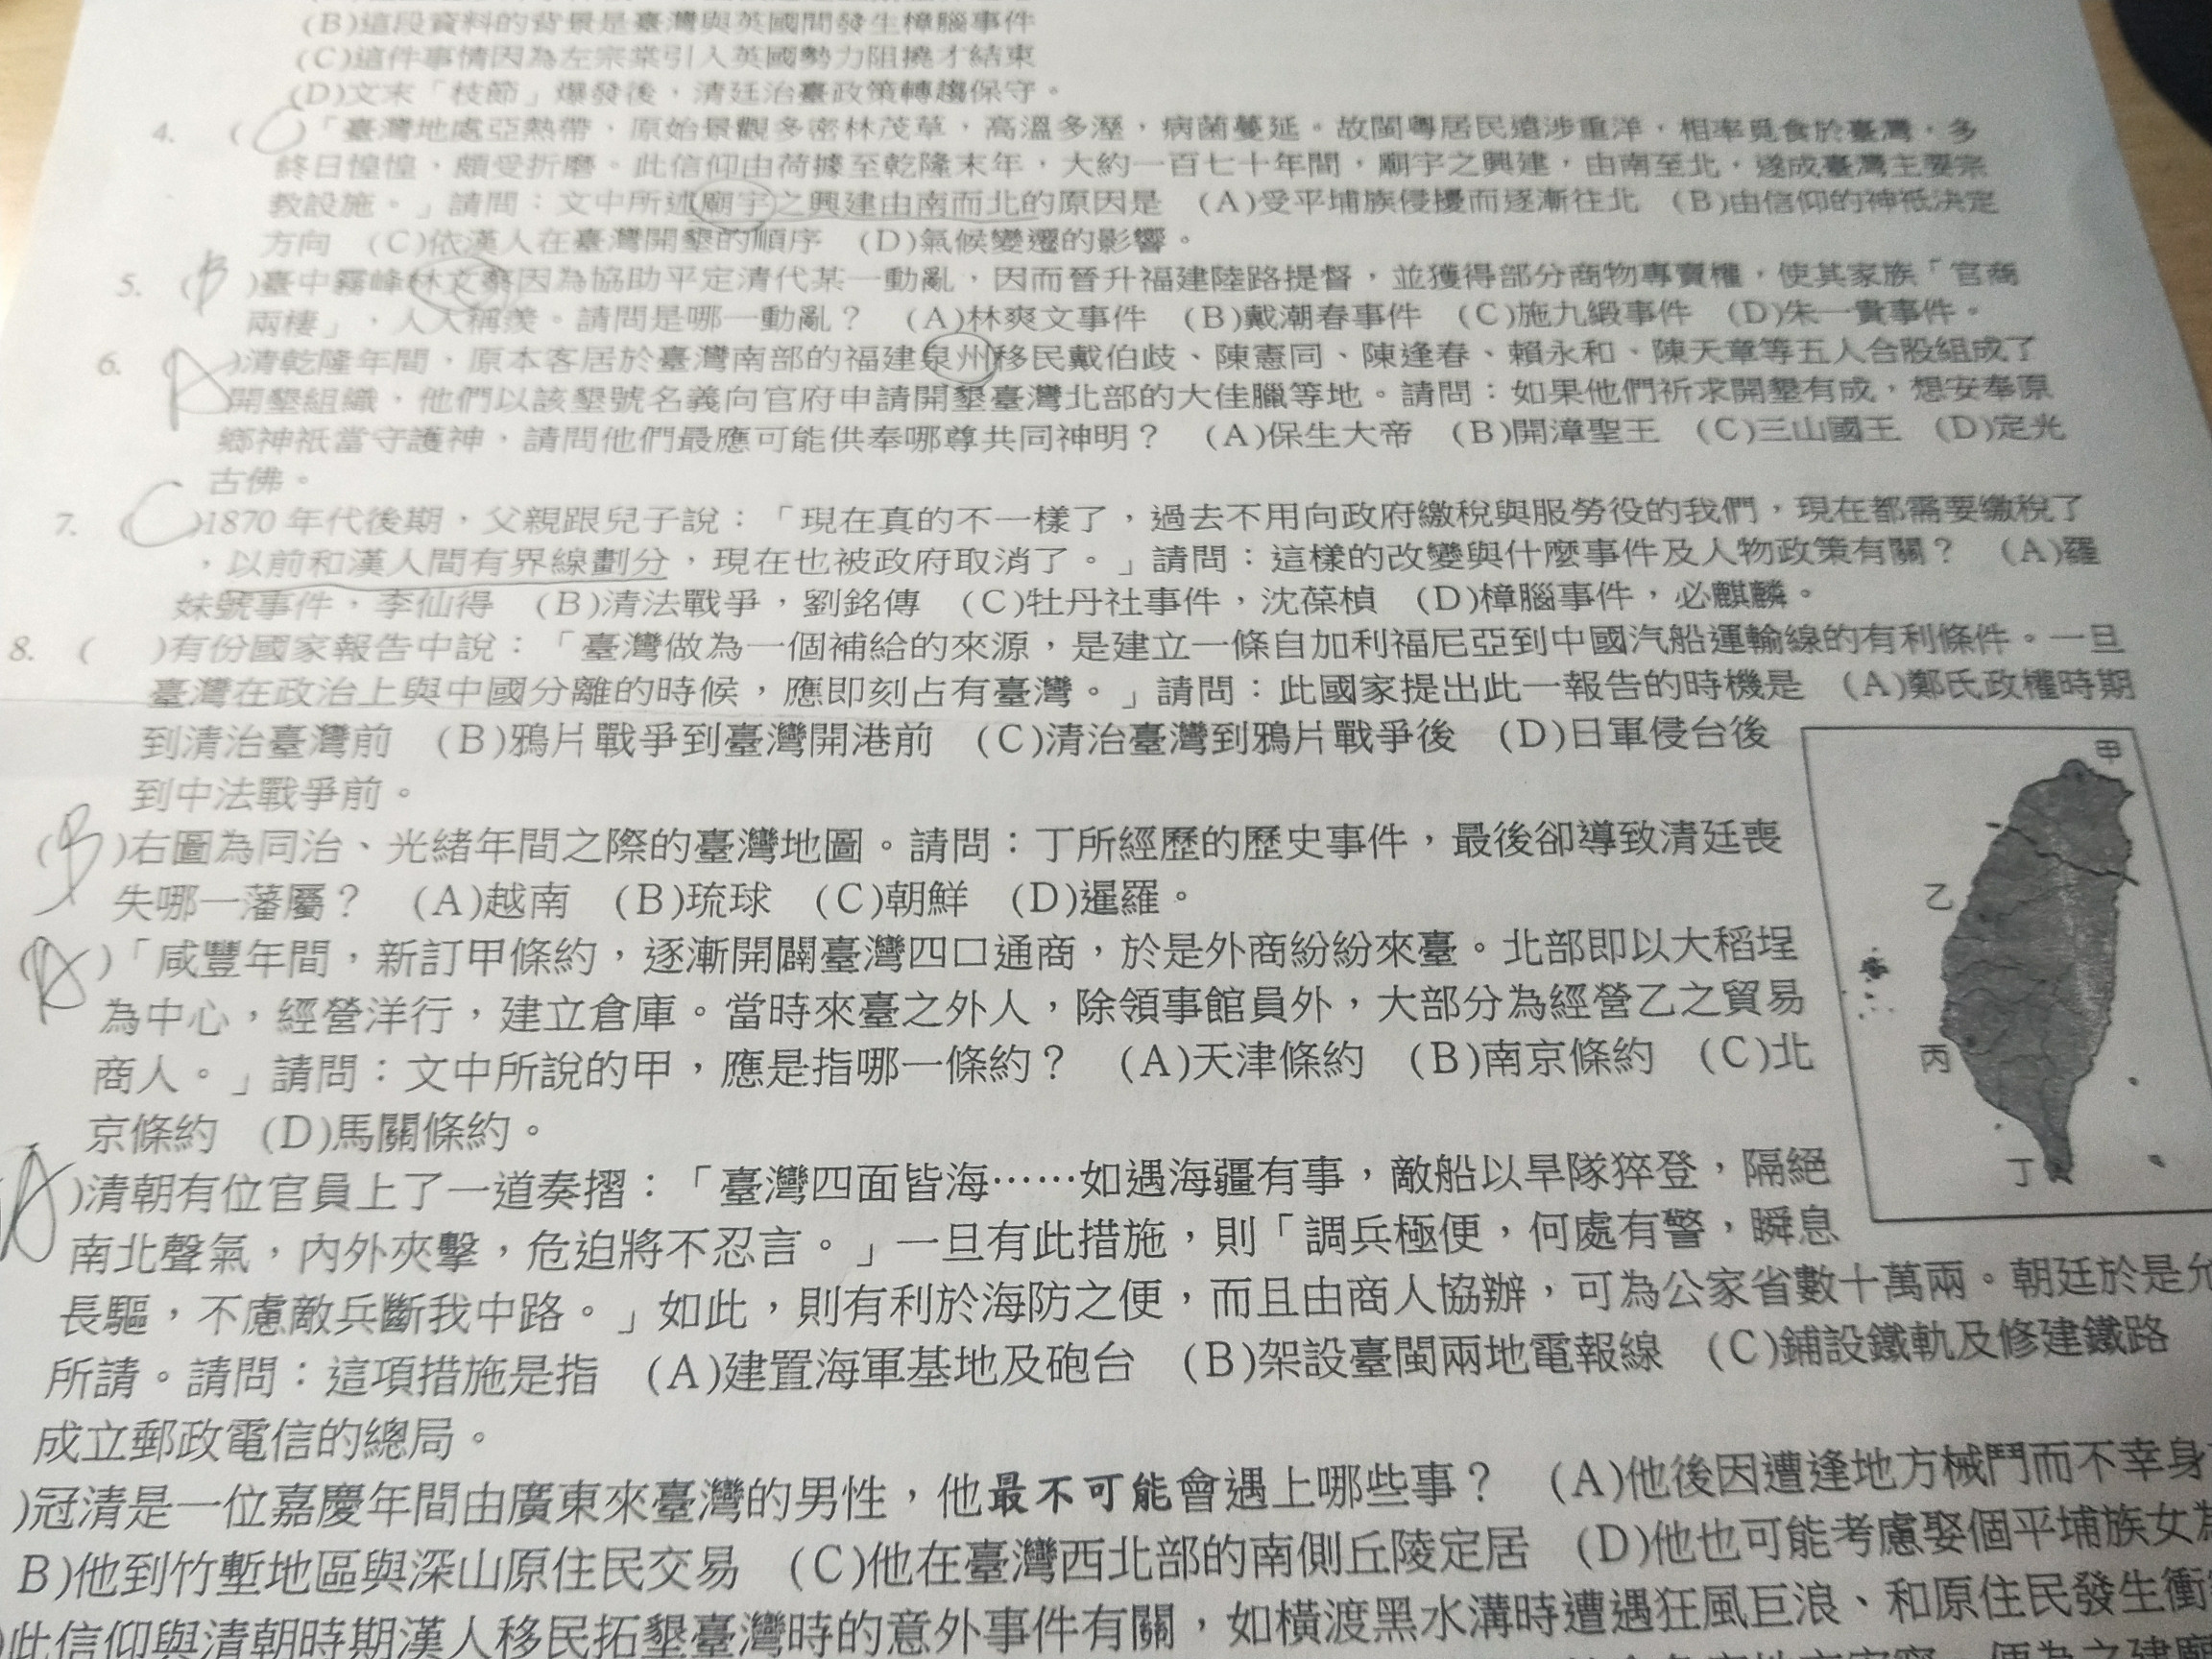 (B)這段資料的背景是臺灣與英國間發生樟腦事件
(C)這件事情因為左宗棠引入英國勢力阻撓才結束
(D)文末「枝節」爆發後，清廷治臺政策轉趨保守。
4. (C)「臺灣地處亞熱帶，原始景觀多密林茂草，高溫多溼，病菌蔓延。故閩粵居民遠涉重洋，相率覓食於臺灣，多
終日惶惶，頗受折磨。此信仰由荷據至乾隆末年，大約一百七十年間，廟宇之興建，由南至北，遂成臺灣主要宗
教設施。」請問：文中所述廟宇之興建由南而北的原因是 (A)受平埔族侵擾而逐漸往北 (B)由信仰的神祇決定
方向 (C)依漢人在臺灣開墾的順序 (D)氣候變遷的影響。
5. (B)臺中霧峰林文察因為協助平定清代某一動亂，因而晉升福建陸路提督，並獲得部分商物專賣權，使其家族「官商
兩棲」，人人稱羨。請問是哪一動亂？ (A)林爽文事件 (B)戴潮春事件 (C)施九緞事件 (D)朱一貴事件。
6. (A)清乾隆年間，原本客居於臺灣南部的福建泉州移民戴伯歧、陳憲同、陳逢春、賴永和、陳天章等五人合股組成了
開墾組織，他們以該墾號名義向官府申請開墾臺灣北部的大佳臘等地。請問：如果他們祈求開墾有成，想安奉原
鄉神祇當守護神，請問他們最應可能供奉哪尊共同神明？ (A)保生大帝 (B)開漳聖王 (C)三山國王 (D)定光
古佛。
7. (C)1870 年代後期，父親跟兒子說：「現在真的不一樣了，過去不用向政府繳稅與服勞役的我們，現在都需要繳稅了
，以前和漢人間有界線劃分，現在也被政府取消了。」請問：這樣的改變與什麼事件及人物政策有關？ (A)羅
妹號事件，李仙得 (B)清法戰爭，劉銘傳 (C)牡丹社事件，沈葆楨 (D)樟腦事件，必麒麟。
8. ( )有份國家報告中說：「臺灣做為一個補給的來源，是建立一條自加利福尼亞到中國汽船運輸線的有利條件。一旦
臺灣在政治上與中國分離的時候，應即刻占有臺灣。」請問：此國家提出此一報告的時機是 (A)鄭氏政權時期
到清治臺灣前 (B)鴉片戰爭到臺灣開港前 (C)清治臺灣到鴉片戰爭後 (D)日軍侵台後
到中法戰爭前。
甲
(B)右圖為同治、光緒年間之際的臺灣地圖。請問：丁所經歷的歷史事件，最後卻導致清廷喪
失哪一藩屬？ (A)越南 (B)琉球 (C)朝鮮 (D)暹羅。
乙
(A)「咸豐年間，新訂甲條約，逐漸開闢臺灣四口通商，於是外商紛紛來臺。北部即以大稻埕
為中心，經營洋行，建立倉庫。當時來臺之外人，除領事館員外，大部分為經營乙之貿易
商人。」請問：文中所說的甲，應是指哪一條約？ (A)天津條約 (B)南京條約 (C)北
丙
京條約 (D)馬關條約。
丁
(A)清朝有位官員上了一道奏摺：「臺灣四面皆海……如遇海疆有事，敵船以旱隊猝登，隔絕
南北聲氣，內外夾擊，危迫將不忍言。」一旦有此措施，則「調兵極便，何處有警，瞬息
長驅，不慮敵兵斷我中路。」如此，則有利於海防之便，而且由商人協辦，可為公家省數十萬兩。朝廷於是允
所請。請問：這項措施是指 (A)建置海軍基地及砲台 (B)架設臺閩兩地電報線 (C)鋪設鐵軌及修建鐵路
成立郵政電信的總局。
)冠清是一位嘉慶年間由廣東來臺灣的男性，他最不可能會遇上哪些事？ (A)他後因遭逢地方械鬥而不幸身
B)他到竹塹地區與深山原住民交易 (C)他在臺灣西北部的南側丘陵定居 (D)他也可能考慮娶個平埔族女為
)此信仰與清朝時期漢人移民拓墾臺灣時的意外事件有關，如橫渡黑水溝時遭遇狂風巨浪、和原住民發生衝